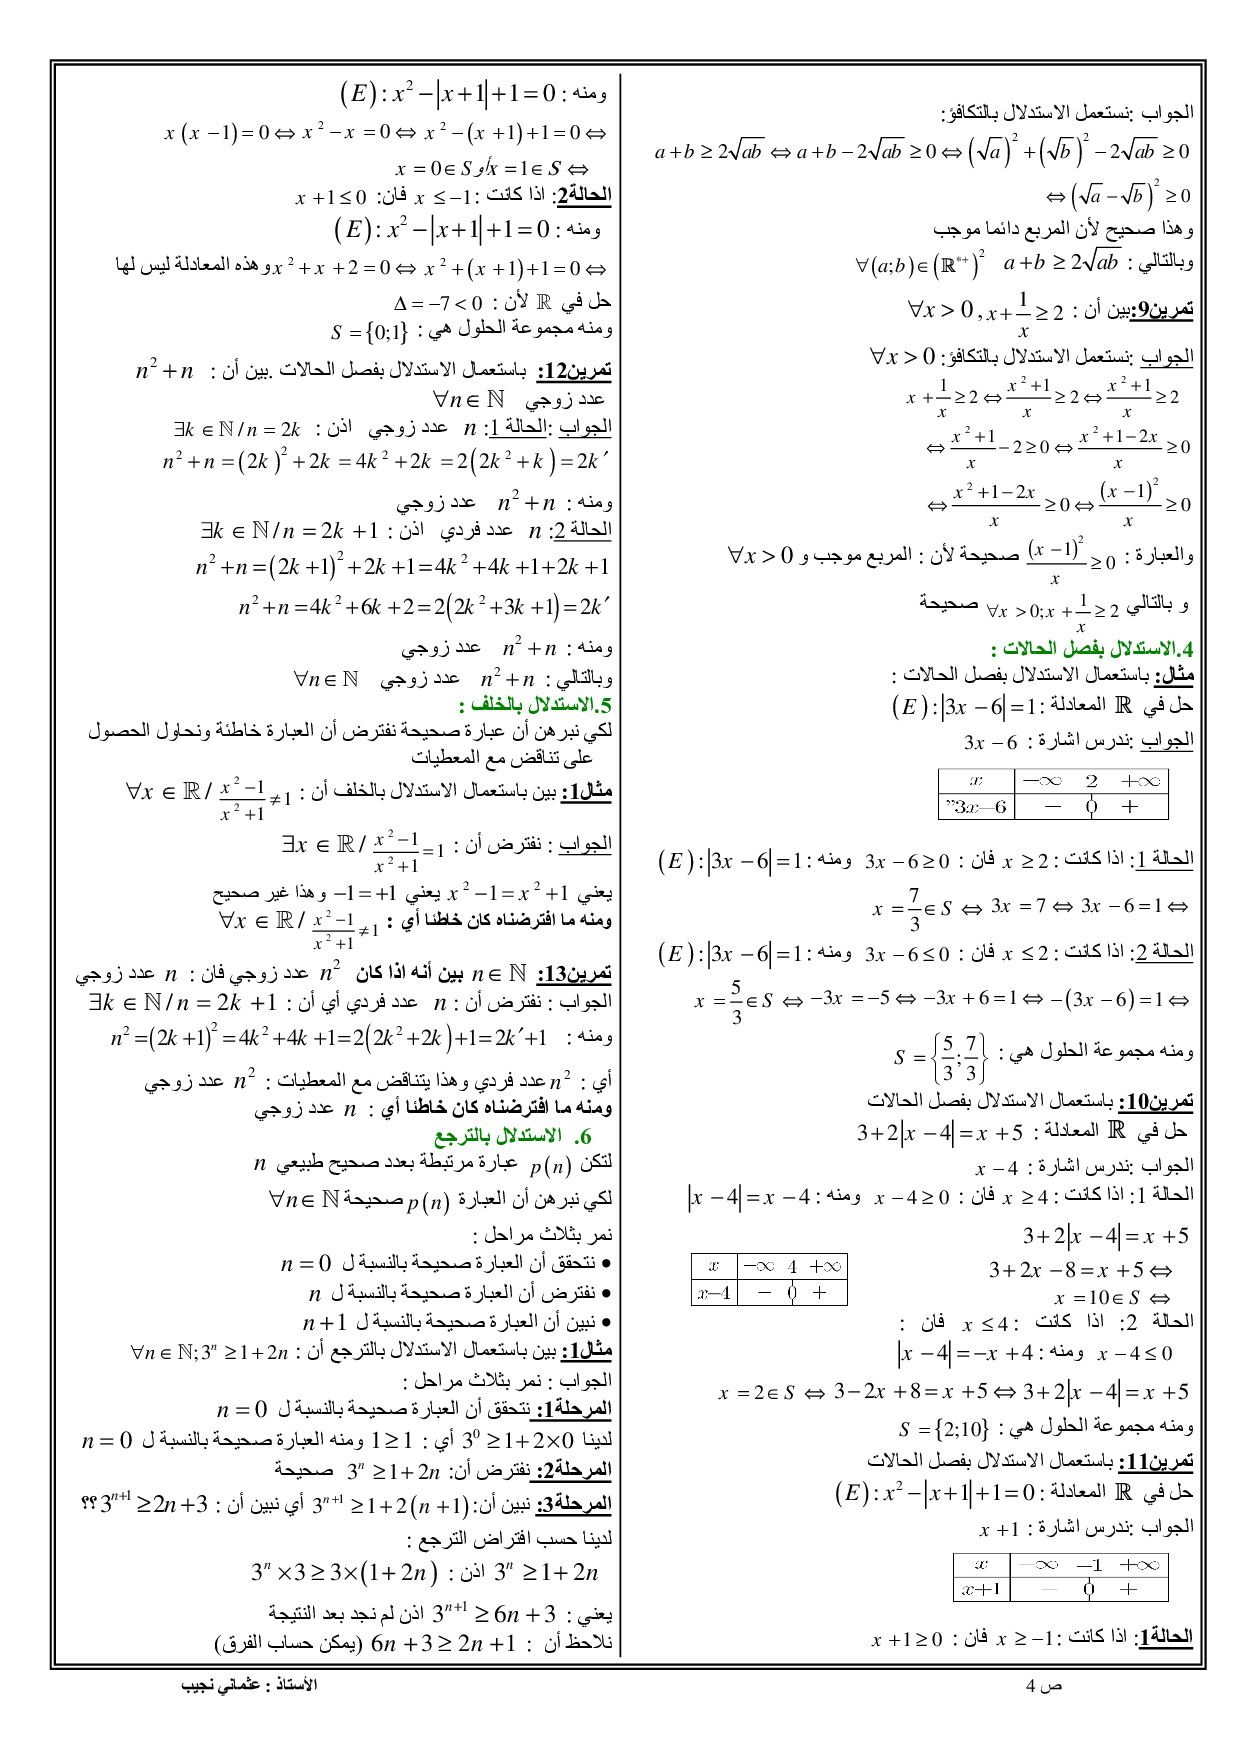 الجواب :نستعمل الاستدلال بالتكافؤ:
a+b ≥ 2√ab ⇔ a+b−2√ab ≥ 0 ⇔ (√a)² + (√b)² − 2√ab ≥ 0
⇔ (√a − √b)² ≥ 0
وهذا صحيح لأن المربع دائما موجب
وبالتالي : a+b ≥ 2√ab ∀(a;b)∈(ℝ*⁺)²
تمرين9:بين أن : ∀x > 0 , x + 1/x ≥ 2
الجواب :نستعمل الاستدلال بالتكافؤ: ∀x > 0
x + 1/x ≥ 2 ⇔ (x²+1)/x ≥ 2 ⇔ (x²+1)/x ≥ 2
⇔ (x²+1)/x − 2 ≥ 0 ⇔ (x²+1−2x)/x ≥ 0
⇔ (x²+1−2x)/x ≥ 0 ⇔ (x−1)²/x ≥ 0
والعبارة : (x−1)²/x ≥ 0 صحيحة لأن : المربع موجب و ∀x > 0
و بالتالي ∀x > 0; x + 1/x ≥ 2 صحيحة
4.الاستدلال بفصل الحالات :
مثال: باستعمال الاستدلال بفصل الحالات :
حل في ℝ المعادلة : (E): |3x − 6| = 1
الجواب :ندرس اشارة : 3x − 6
x −∞ 2 +∞
"3x−6 − 0 +
الحالة 1: اذا كانت : x ≥ 2 فان : 3x − 6 ≥ 0 ومنه : (E): |3x − 6| = 1
x = 7/3 ∈ S ⇔ 3x = 7 ⇔ 3x − 6 = 1 ⇔
الحالة 2: اذا كانت : x ≤ 2 فان : 3x − 6 ≤ 0 ومنه : (E): |3x − 6| = 1
x = 5/3 ∈ S ⇔ −3x = −5 ⇔ −3x + 6 = 1 ⇔ −(3x − 6) = 1 ⇔
ومنه مجموعة الحلول هي : S = {5/3; 7/3}
تمرين10: باستعمال الاستدلال بفصل الحالات
حل في ℝ المعادلة : 3 + 2|x − 4| = x + 5
الجواب :ندرس اشارة : x − 4
الحالة 1: اذا كانت : x ≥ 4 فان : x − 4 ≥ 0 ومنه : |x − 4| = x − 4
3 + 2|x − 4| = x + 5
3 + 2x − 8 = x + 5 ⇔
x = 10 ∈ S ⇔
x −∞ 4 +∞
x−4 − 0 +
الحالة 2: اذا كانت : x ≤ 4 فان :
x − 4 ≤ 0 ومنه : |x − 4| = −x + 4
x = 2 ∈ S ⇔ 3 − 2x + 8 = x + 5 ⇔ 3 + 2|x − 4| = x + 5
ومنه مجموعة الحلول هي : S = {2;10}
تمرين11: باستعمال الاستدلال بفصل الحالات
حل في ℝ المعادلة : (E): x² − |x + 1| + 1 = 0
الجواب :ندرس اشارة : x + 1
x −∞ −1 +∞
x+1 − 0 +
الحالة1: اذا كانت : x ≥ −1 فان : x + 1 ≥ 0
ومنه : (E): x² − |x + 1| + 1 = 0
x(x − 1) = 0 ⇔ x² − x = 0 ⇔ x² − (x + 1) + 1 = 0 ⇔
x = 0 ∈ S أو x = 1 ∈ S ⇔
الحالة2: اذا كانت : x ≤ −1 فان: x + 1 ≤ 0
ومنه : (E): x² − |x + 1| + 1 = 0
x² + x + 2 = 0 ⇔ x² + (x + 1) + 1 = 0 ⇔ وهذه المعادلة ليس لها
حل في ℝ لأن : Δ = −7 < 0
ومنه مجموعة الحلول هي : S = {0;1}
تمرين12: باستعمال الاستدلال بفصل الحالات .بين أن : n² + n
عدد زوجي ∀n ∈ ℕ
الجواب :الحالة 1: n عدد زوجي اذن : ∃k ∈ ℕ / n = 2k
n² + n = (2k)² + 2k = 4k² + 2k = 2(2k² + k) = 2k′
ومنه : n² + n عدد زوجي
الحالة 2: n عدد فردي اذن : ∃k ∈ ℕ / n = 2k + 1
n² + n = (2k + 1)² + 2k + 1 = 4k² + 4k + 1 + 2k + 1
n² + n = 4k² + 6k + 2 = 2(2k² + 3k + 1) = 2k′
ومنه : n² + n عدد زوجي
وبالتالي : n² + n عدد زوجي ∀n ∈ ℕ
5.الاستدلال بالخلف :
لكي نبرهن أن عبارة صحيحة نفترض أن العبارة خاطئة ونحاول الحصول
على تناقض مع المعطيات
مثال1: بين باستعمال الاستدلال بالخلف أن : ∀x ∈ ℝ / (x² − 1)/(x² + 1) ≠ 1
الجواب : نفترض أن : ∃x ∈ ℝ / (x² − 1)/(x² + 1) = 1
يعني x² − 1 = x² + 1 يعني −1 = +1 وهذا غير صحيح
ومنه ما افترضناه كان خاطئا أي : ∀x ∈ ℝ / (x² − 1)/(x² + 1) ≠ 1
تمرين13: n ∈ ℕ بين أنه اذا كان n² عدد زوجي فان : n عدد زوجي
الجواب : نفترض أن : n عدد فردي أي أن : ∃k ∈ ℕ / n = 2k + 1
ومنه : n² = (2k + 1)² = 4k² + 4k + 1 = 2(2k² + 2k) + 1 = 2k′ + 1
أي : n² عدد فردي وهذا يتناقض مع المعطيات : n² عدد زوجي
ومنه ما افترضناه كان خاطئا أي : n عدد زوجي
6. الاستدلال بالترجع
لتكن p(n) عبارة مرتبطة بعدد صحيح طبيعي n
لكي نبرهن أن العبارة p(n) صحيحة ∀n ∈ ℕ
نمر بثلاث مراحل :
• نتحقق أن العبارة صحيحة بالنسبة ل n = 0
• نفترض أن العبارة صحيحة بالنسبة ل n
• نبين أن العبارة صحيحة بالنسبة ل n + 1
مثال1: بين باستعمال الاستدلال بالترجع أن : ∀n ∈ ℕ; 3ⁿ ≥ 1 + 2n
الجواب : نمر بثلاث مراحل :
المرحلة1: نتحقق أن العبارة صحيحة بالنسبة ل n = 0
لدينا 3⁰ ≥ 1 + 2×0 أي : 1 ≥ 1 ومنه العبارة صحيحة بالنسبة ل n = 0
المرحلة2: نفترض أن: 3ⁿ ≥ 1 + 2n صحيحة
المرحلة3: نبين أن: 3ⁿ⁺¹ ≥ 1 + 2(n + 1) أي نبين أن : 3ⁿ⁺¹ ≥ 2n + 3 ؟؟
لدينا حسب افتراض الترجع :
3ⁿ ≥ 1 + 2n اذن : 3ⁿ × 3 ≥ 3 × (1 + 2n)
يعني : 3ⁿ⁺¹ ≥ 6n + 3 اذن لم نجد بعد النتيجة
نلاحظ أن : 6n + 3 ≥ 2n + 1 (يمكن حساب الفرق)
ص 4
الأستاذ : عثماني نجيب